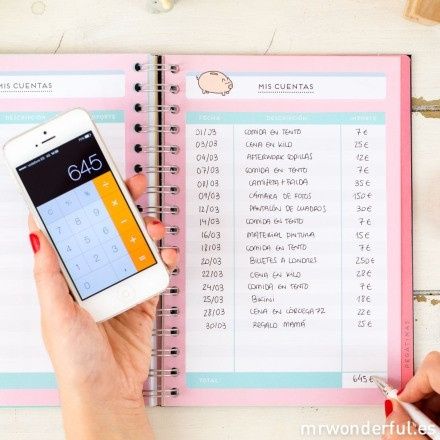 MIS CUENTAS
DESCRIPCIÓN
645
MIS CUENTAS
FECHA DESCRIPCIÓN IMPORTE
01/03 COMIDA EN TENTO 7€
03/03 CENA EN KILO 25€
04/03 AFTERWORK COPILLAS 12€
07/03 COMIDA EN TENTO 7€
08/03 CAMISETA + FALDA 35€
09/03 CÁMARA DE FOTOS 150€
12/03 PANTALÓN DE CUADROS 30€
14/03 COMIDA EN TENTO 7€
16/03 MATERIAL PINTURA 15€
18/03 COMIDA EN TENTO 7€
20/03 BILLETES A LONDRES 250€
22/03 CENA EN KILO 28€
24/03 COMIDA EN TENTO 7€
25/03 BIKINI 18€
28/03 CENA EN CÓRCEGA 72 22€
30/03 REGALO MAMÁ 25€
PEGATINAS
TOTAL 645€
mrwonderful.es